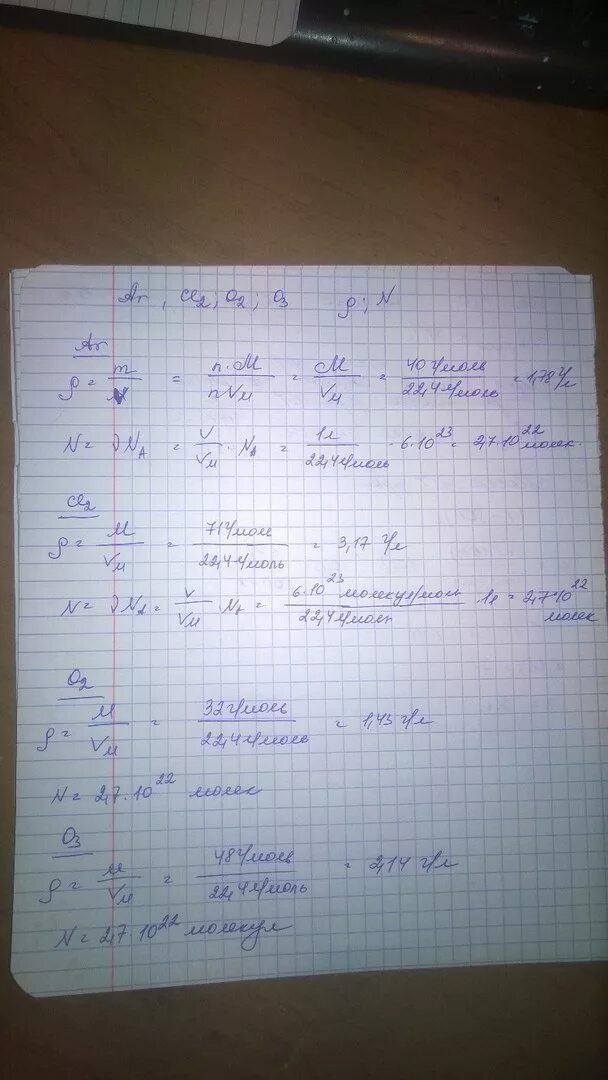 Ar, Cl₂; O₂; O₃ ρ; N
Ar
ρ = m/V = n·M/nVм = M/Vм = 40 г/моль / 22,4 л/моль = 1,78 г/л
N = νNA = V/Vм · NA = 1л / 22,4 л/моль · 6·10²³ = 2,7·10²² молек.
Cl₂
ρ = M/Vм = 71 г/моль / 22,4 л/моль = 3,17 г/л
N = νNA = V/Vм · NA = 6·10²³ молекул/моль / 22,4 л/моль · 1л = 2,7·10²² молек
O₂
ρ = M/Vм = 32 г/моль / 22,4 л/моль = 1,43 г/л
N = 2,7·10²² молек
O₃
ρ = M/Vм = 48 г/моль / 22,4 л/моль = 2,14 г/л
N = 2,7·10²² молекул